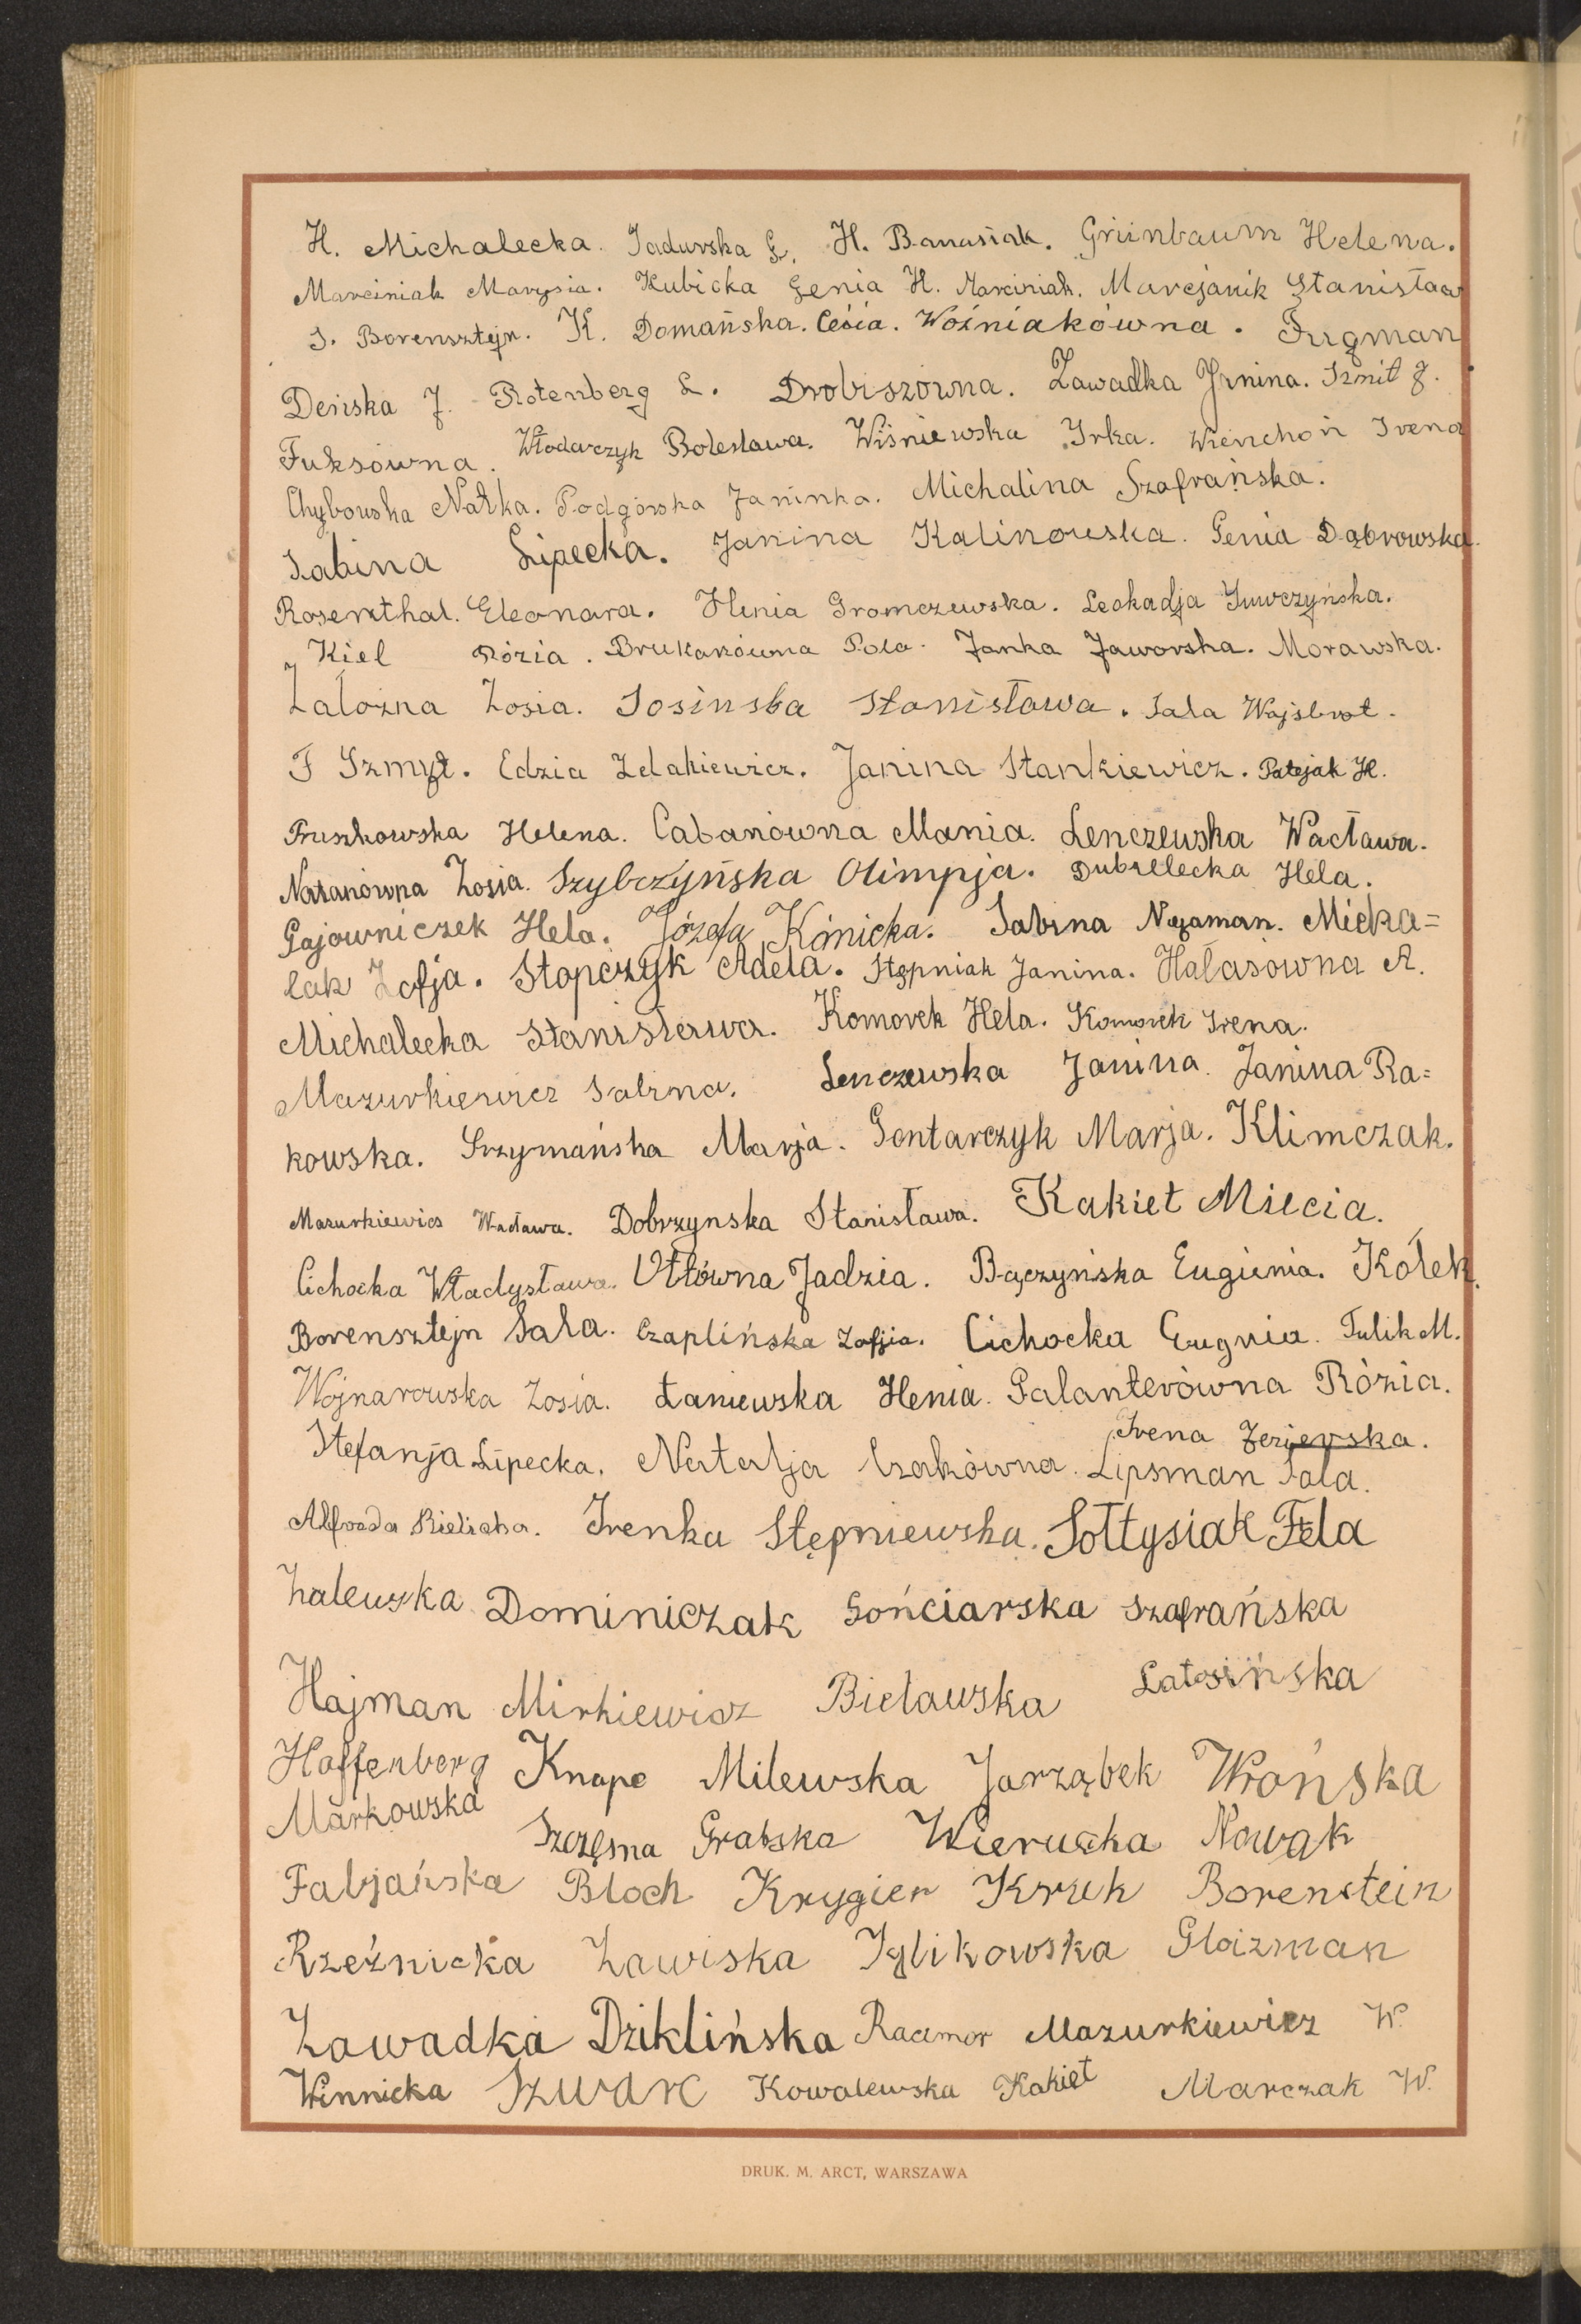 H. Michalecka. Sadurska L. H. Banasiak. Grünbaum Helena.
Marciniak Marysia. Kubicka Genia H. Marciniak. Marcjanik Stanisław
S. Borensztejn. K. Domańska. Cesia. Woźniakówna. Frugman
Deńska J. Rotenberg L. Drobiszówna. Zawadka Janina. Szmit J.
Fuksówna. Włodarczyk Bolesława. Wiśniewska Irka. Wienchoń Irena
Chybowska Natka. Podgórska Janinka. Michalina Szafrańska.
Sabina Lipecka. Janina Kalinowska. Genia Dąbrowska.
Rosenthal. Eleonara. Henia Gromczewska. Leokadja
Kiel Rózia. Brukarówna Pola. Janka Jaworska. Morawska.
Zalożna Zosia. Sosinska Stanisława. Sala Wajsbrot.
F Szmyt. Edzia Zelakiewicz. Janina Stankiewicz. Patejak H.
Pruszkowska Helena. Cabanówna Mania. Lenczewska Wacława.
Natanówna Zosia. Szybczyńska Olimpja. Dubielecka Hela.
Gajowniczek Hela. Józefa Kónicka. Sabina Najaman. Micha=
lak Zofja. Stopczyk Adela. Stępniak Janina. Hałasówna A.
Michalecka Stanisława. Komorek Hela. Komorek Irena.
Mazurkiewicz Sabina. Lenczewska Janina. Janina Ra=
kowska. Szymańska Marja. Gontarczyk Marja. Klimczak.
Mazurkiewics Wacława. Dobrzynska Stanisława. Kakiet Miecia.
Cichocka Władysława. Ottówna Jadzia. Bączyńska Eugienia. Kołek.
Borensztejn Sala. Czaplińska Zofjia. Cichocka Eugnia. Tulik M.
Wojnarowska Zosia. Łaniewska Henia. Galanterówna Rózia.
Irena Jezierska.
Stefanja Lipecka. Natalja Czakówna. Lipsman Sala.
Alfreda Kielicha. Irenka Stępniewska. Sołtysiak Fela
Zalewska Dominiczak Gońciarska Szafrańska
Hajman Mirkiewicz Bielawska Latosińska
Haffenberg Knape Milewska Jarząbek Wrońska
Markowska Szczęsna Grabska Wierucka Nowak
Fabjańska Bloch Krygier Kruk Borenstein
Rzeźnicka Zawiska Iglikowska Glaizman
Zawadka Dziklińska Racimor Mazurkiewicz W.
Winnicka Szwarc Kowalewska Kakiet Marczak W.
DRUK. M. ARCT, WARSZAWA